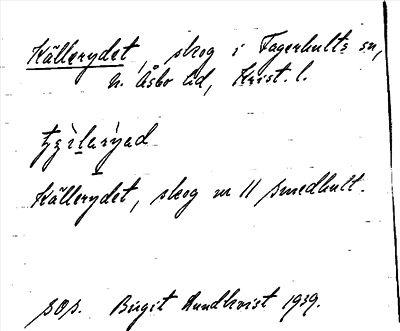 Källerydet, skog i Fagerhults sn,
N. Åsbo hd, Krist. l.
Källerydet, skog nr 11 Smedhult.
SOS. Birgit Rundkvist 1939.